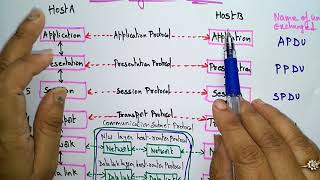 Host A
Host B
Name of un
exchanged
Application
Application Protocol
Application
APDU
Presentation Protocol
PPDU
Session Protocol
SPDU
Transpot Protocol
Communication Subnet Protocol
N/w layer host-router Protocol
Network
Network
Data link layer host-router Protocol
Data link
Data link